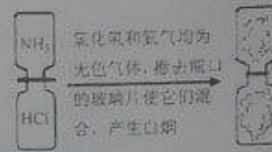 NH₃
HCl
氯化氢和氨气均为
无色气体，抽去瓶口
的玻璃片使它们混
合，产生白烟